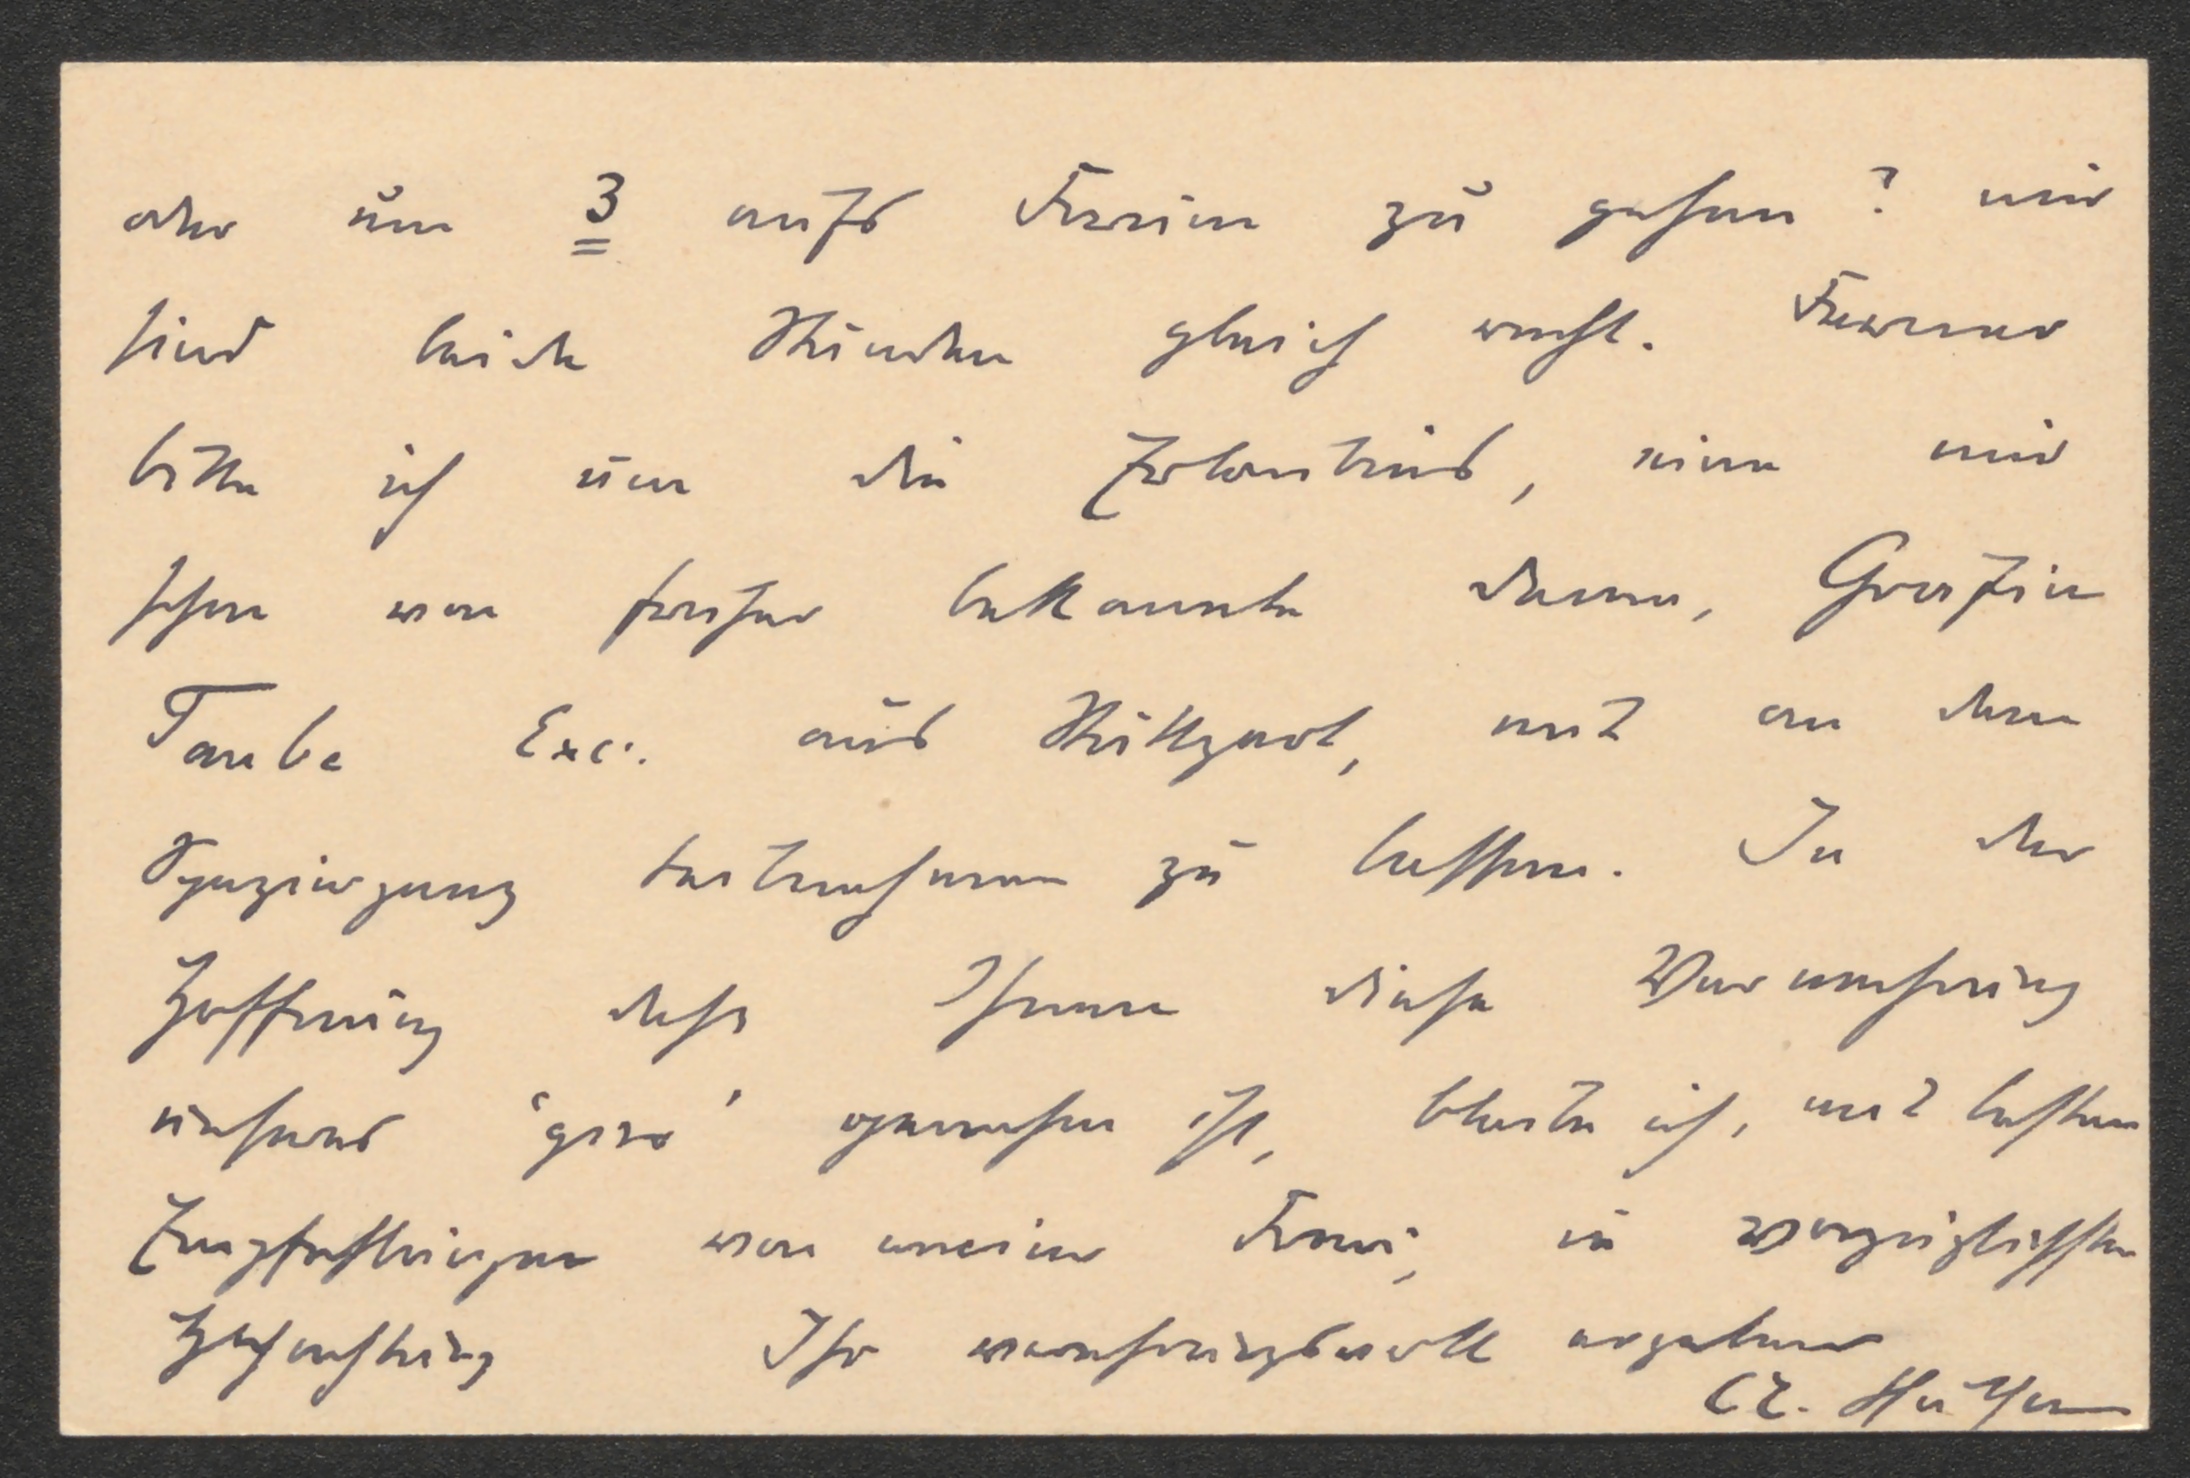 oder um 3 aufs Forum zu gehen? mir
sind beide Stunden gleich recht. Ferner
bitte ich um die Erlaubnis, eine mir
schon von früher bekannte Dame, Gräfin
Taube Exc. aus Stuttgart, mit an dem
Spaziergang teilnehmen zu lassen. In der
Hoffnung dass Ihnen diese Vermehrung
unseres 'giro' genehm ist, bleibe ich, mit besten
Empfehlungen von meiner Frau, in vorzüglichster
Hochachtung Ihr verehrungsvoll ergebener